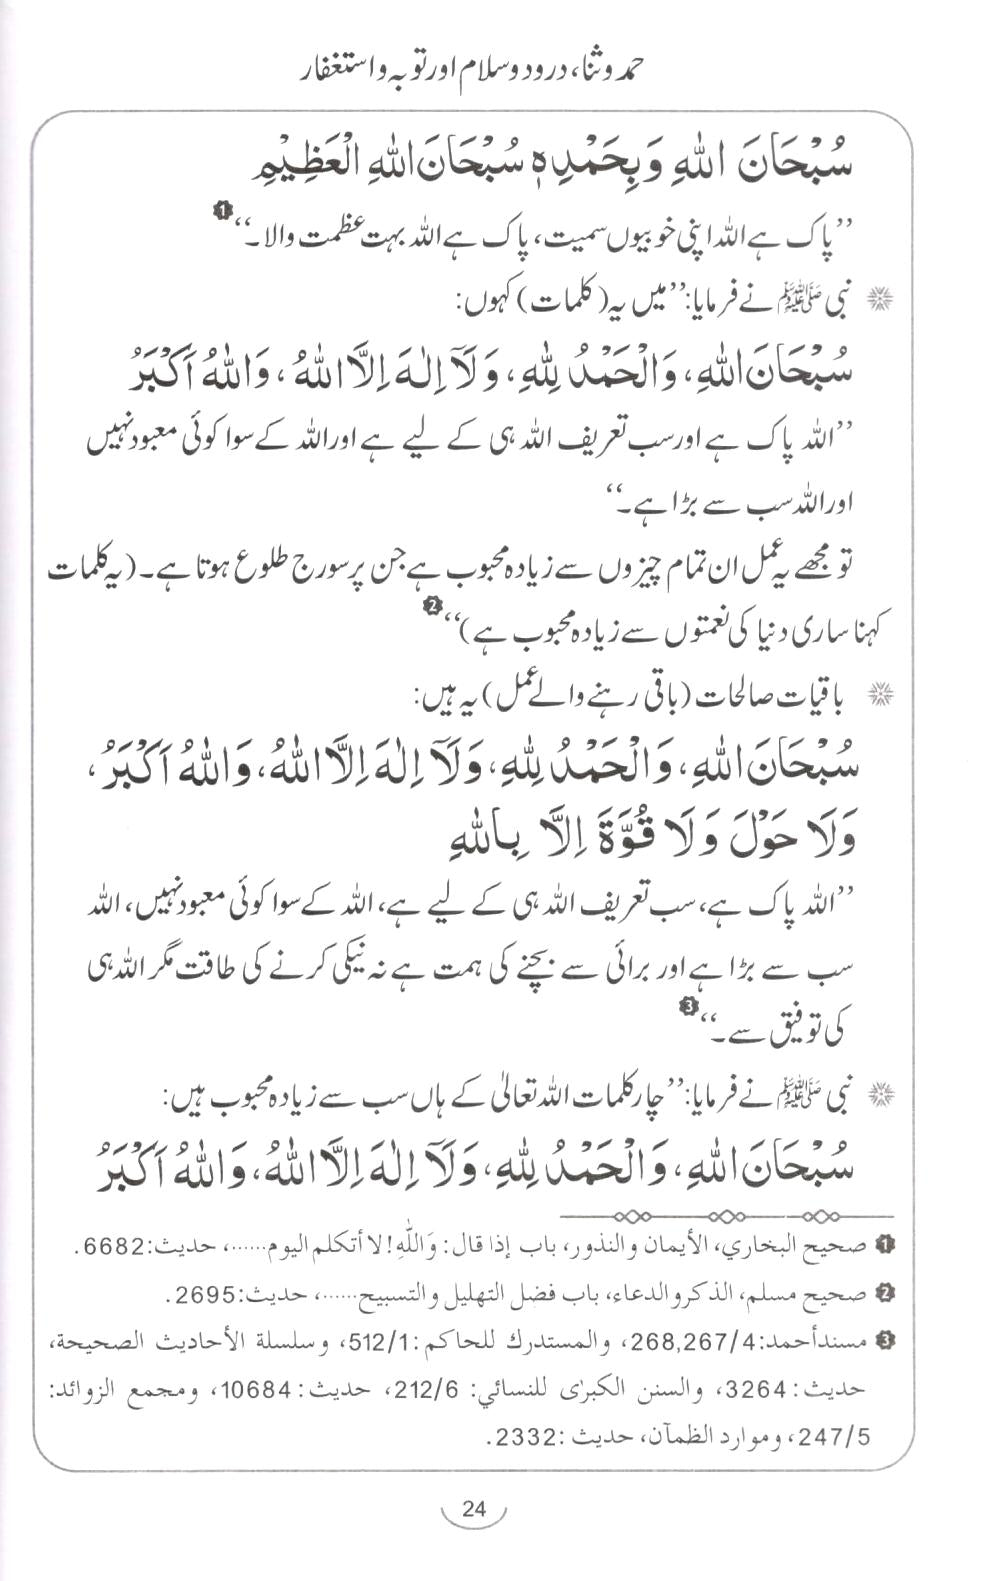 حمد و ثنا، درود و سلام اور توبہ و استغفار
سُبْحَانَ اللهِ وَبِحَمْدِهٖ سُبْحَانَ اللهِ الْعَظِيْمِ
’’پاک ہے اللہ اپنی خوبیوں سمیت، پاک ہے اللہ بہت عظمت والا۔‘‘ 1
نبی ﷺ نے فرمایا: ’’میں یہ (کلمات) کہوں:
سُبْحَانَ اللهِ، وَالْحَمْدُ لِلّٰهِ، وَلَآ اِلٰهَ اِلَّا اللهُ، وَاللهُ اَكْبَرُ
’’اللہ پاک ہے اور سب تعریف اللہ ہی کے لیے ہے اور اللہ کے سوا کوئی معبود نہیں
اور اللہ سب سے بڑا ہے۔‘‘
تو مجھے یہ عمل ان تمام چیزوں سے زیادہ محبوب ہے جن پر سورج طلوع ہوتا ہے۔ (یہ کلمات
کہنا ساری دنیا کی نعمتوں سے زیادہ محبوب ہے)‘‘ 2
باقیات صالحات (باقی رہنے والے عمل) یہ ہیں:
سُبْحَانَ اللهِ، وَالْحَمْدُ لِلّٰهِ، وَلَآ اِلٰهَ اِلَّا اللهُ، وَاللهُ اَكْبَرُ،
وَلَا حَوْلَ وَلَا قُوَّةَ اِلَّا بِاللهِ
’’اللہ پاک ہے، سب تعریف اللہ ہی کے لیے ہے، اللہ کے سوا کوئی معبود نہیں، اللہ
سب سے بڑا ہے اور برائی سے بچنے کی ہمت ہے نہ نیکی کرنے کی طاقت مگر اللہ ہی
کی توفیق سے۔‘‘ 3
نبی ﷺ نے فرمایا: ’’چار کلمات اللہ تعالیٰ کے ہاں سب سے زیادہ محبوب ہیں:
سُبْحَانَ اللهِ، وَالْحَمْدُ لِلّٰهِ، وَلَآ اِلٰهَ اِلَّا اللهُ، وَاللهُ اَكْبَرُ
1 صحيح البخاري، الأيمان والنذور، باب إذا قال: وَاللّٰهِ! لا أتكلم اليوم......، حديث:6682.
2 صحيح مسلم، الذكر والدعاء، باب فضل التهليل والتسبيح......، حديث:2695.
3 مسند أحمد:268,267/4، والمستدرك للحاكم:512/1، وسلسلة الأحاديث الصحيحة،
حديث:3264، والسنن الكبرٰى للنسائي: 212/6، حديث:10684، ومجمع الزوائد:
247/5، وموارد الظمآن، حديث:2332.
24